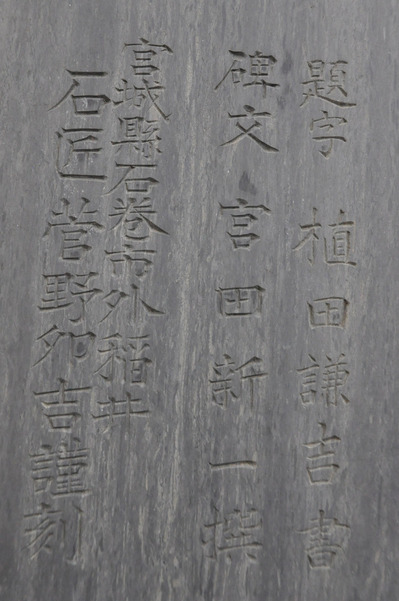 題字 植田謙吉書
碑文 宮田新一撰
宮城縣石巻市外稲井
石匠 菅野卯吉謹刻